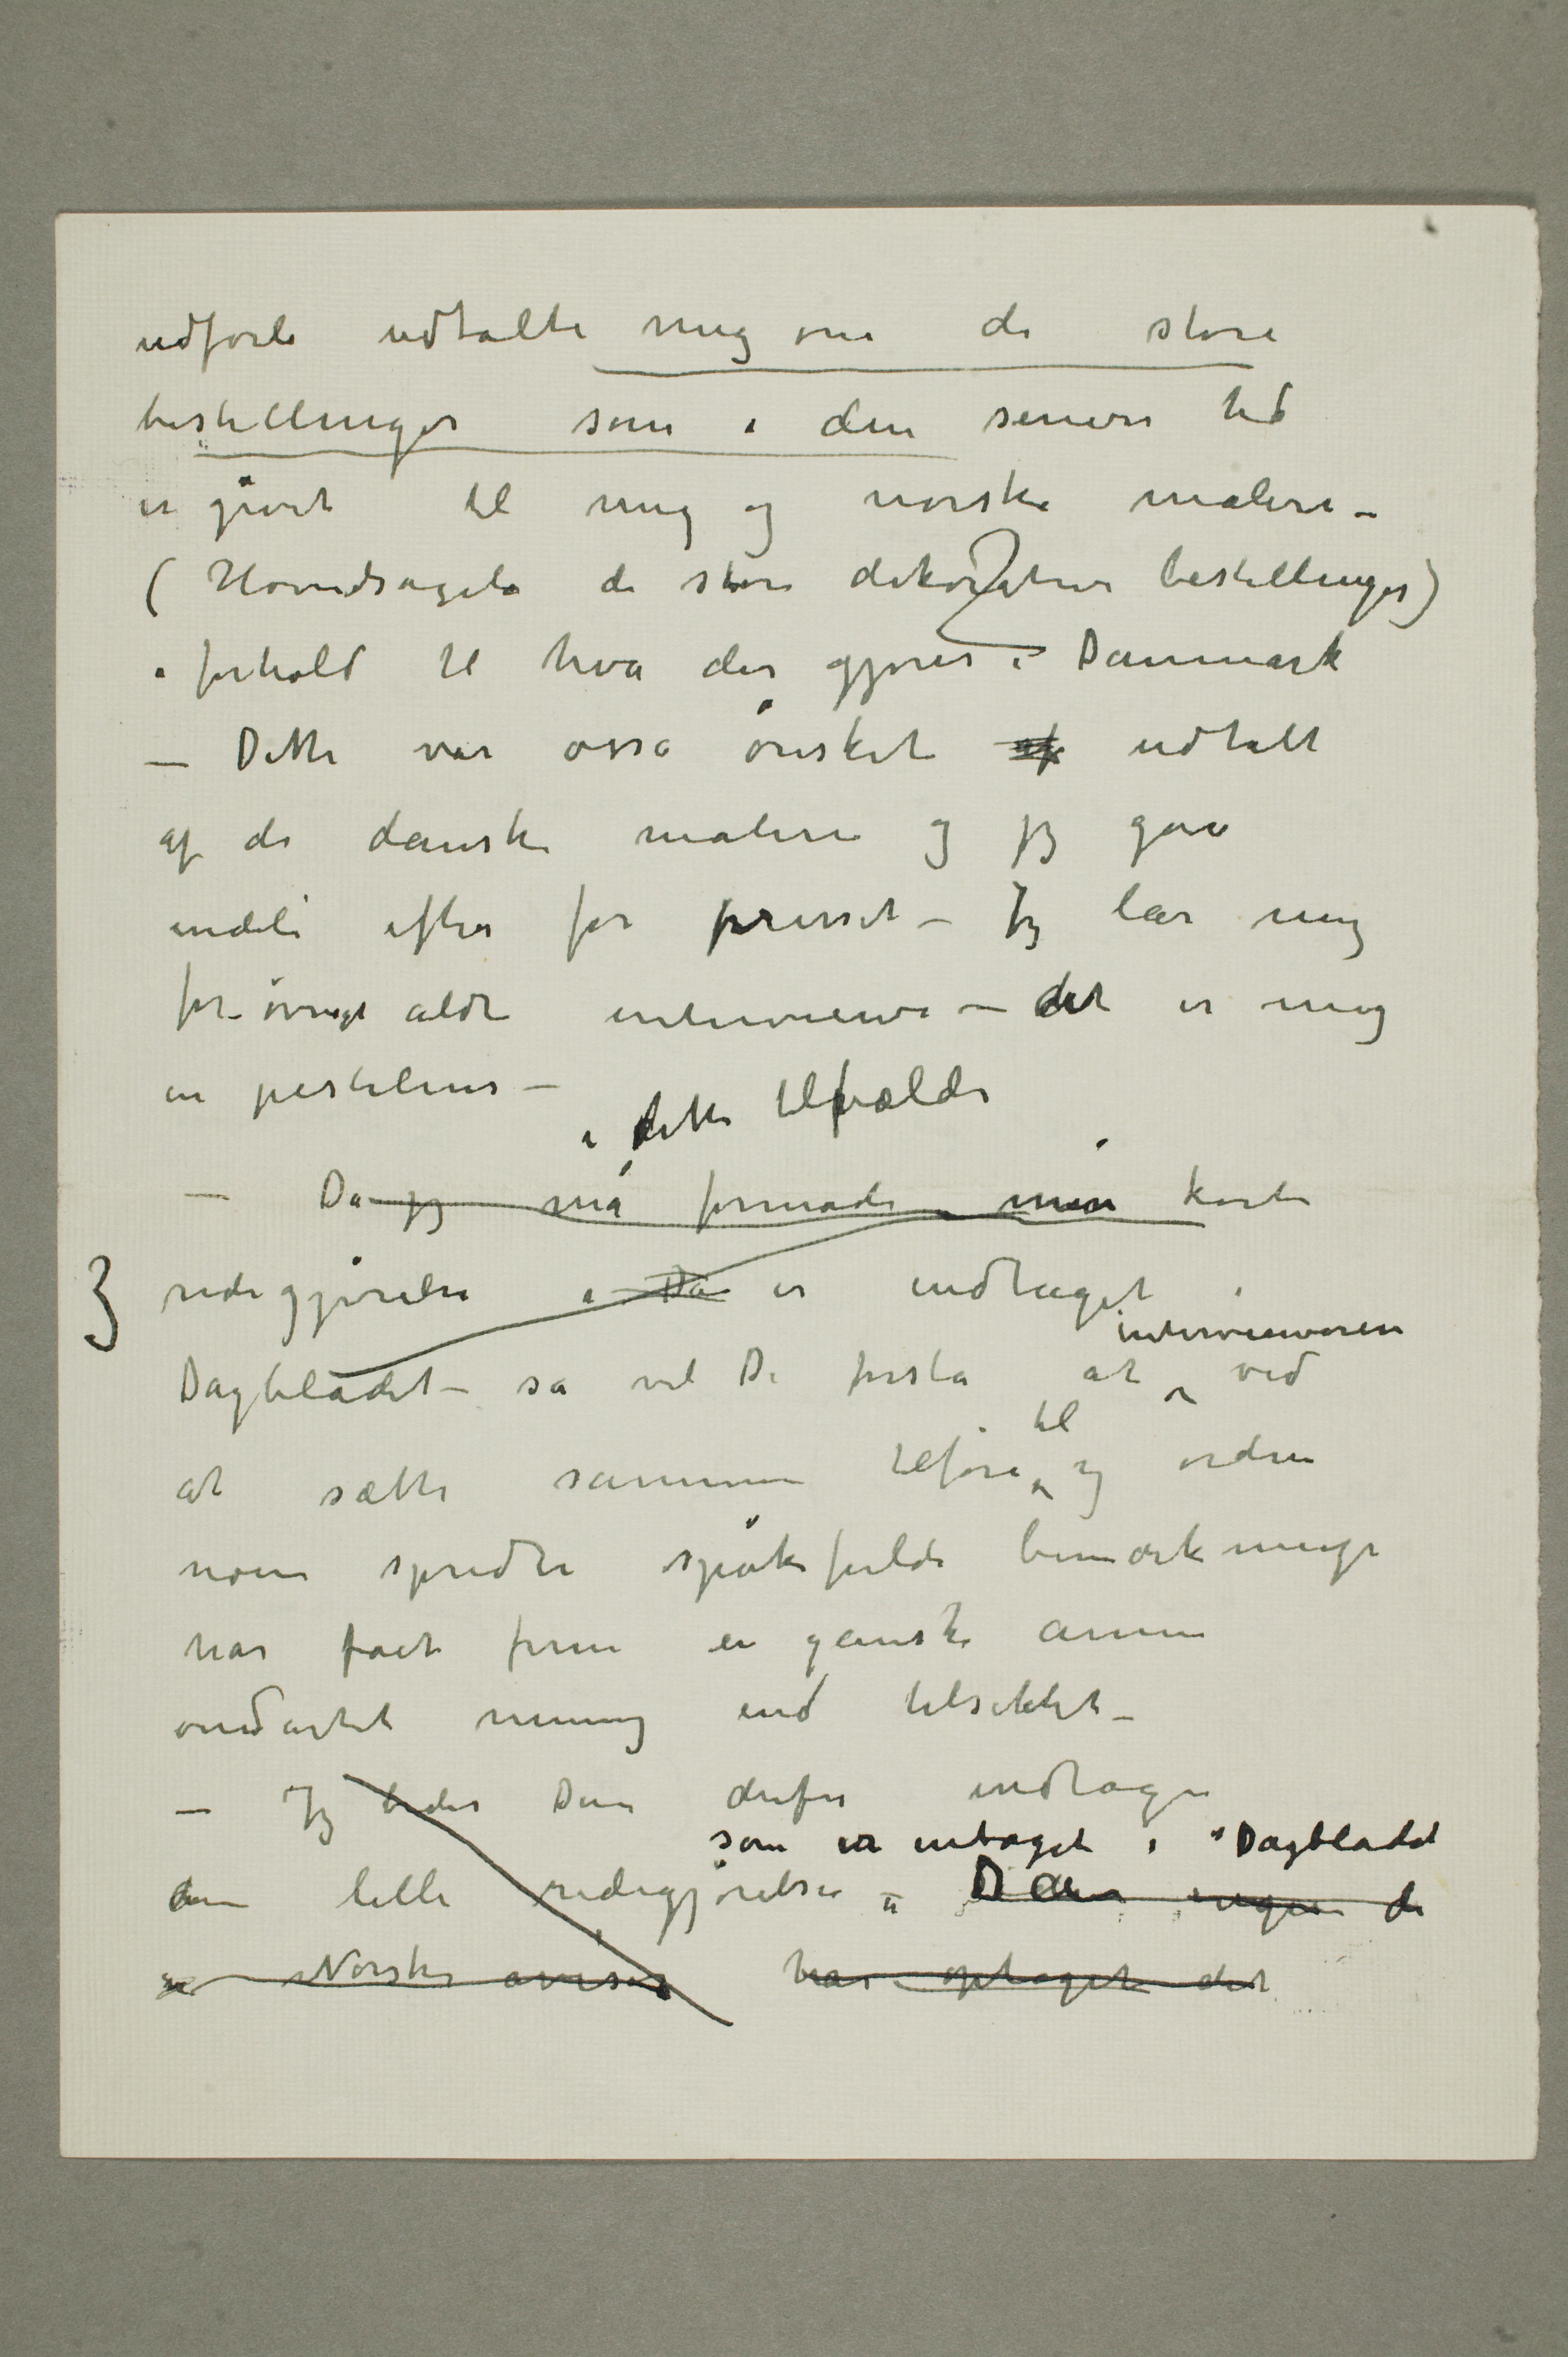 udførli udtalte mig om de store
bestillinger som i den senere tid
er givet til mig og norske malere –
(Hovedsageli de store dekorative bestillinger)
i forhold til hva der gjøres i Danmark
– Dette var osså ønsket af udtalt
af de danske malere og jeg gav
endeli efter for presset – Jeg lar mig
for øvrigt aldri interviewe – det er mig
en pestilens –
i dette tilfælde
– Da jeg må formode min korte
3 redegjørelse i Da er indtaget i
Dagbladet – så vil De forstå at intervieweren ved
at sætte sammen tilføie til og ordne
noen spredte spøkefulde bemærkninger
har fået frem en ganske annen
ondartet mening end tilsiktet –
– Jeg beder Dem derfor indtage
som er intaget i Dagbladet
den lille redegjørelse Da ingen de
Norske aviser har optaget det